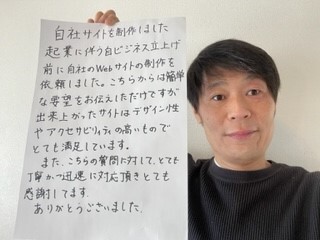 自社サイトを制作しました
起業に伴う自ビジネス立上げ
前に自社のWebサイトの制作を
依頼しました。こちらからは簡単
な要望をお伝えしただけですが
出来上がったサイトはデザイン性
やアクセサビリティの高いもので
とても満足しています。
また、こちらの質問に対して、とても
丁寧かつ迅速に対応頂きとても
感謝してます
ありがとうございました。